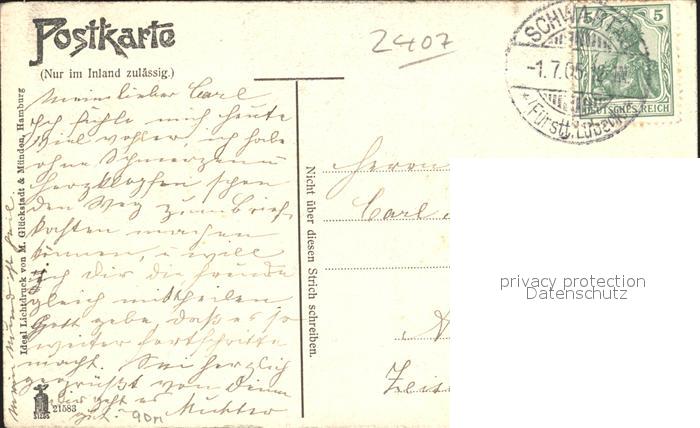 Postkarte
(Nur im Inland zulässig.)
2407
SCHWARTAU
-1.7.05
(Fürstt. Lübeck)
5
DEUTSCHES REICH
Ideal Lichtdruck von M. Glückstadt & Münden, Hamburg
Mein lieber Carl
Ich fühle mich heute
viel wohler, ich habe
ohne Schmerzen u
Herzklopfen schon
den Weg zum Brief-
kasten machen
können, u will
ich Dir die Freude
gleich mittheilen
Gott gebe, daß es so
weiter Fortschritte
macht. Sei herzlich
gegrüßt von Deiner
Mutter
geht es
gut.
Mund ist heil
Nicht über diesen Strich schreiben.
Herrn
Carl
Zeis
21583
90m
privacy protection
Datenschutz